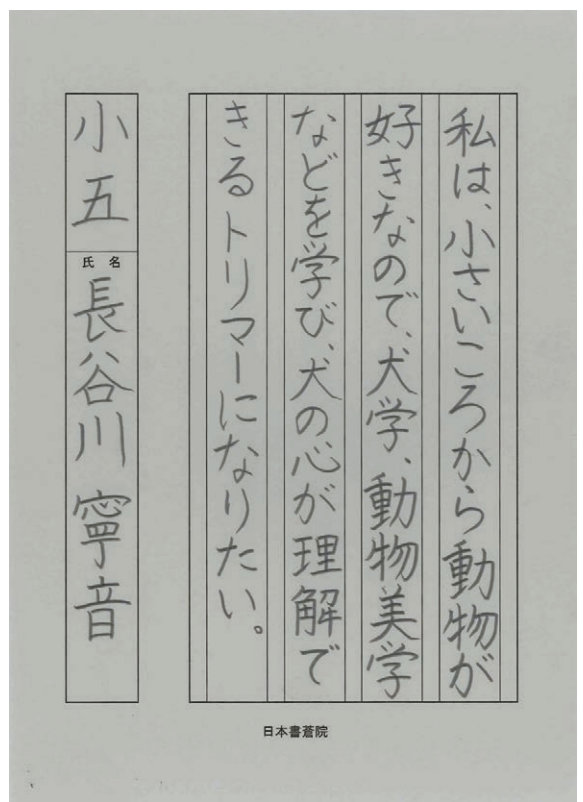 私は、小さいころから動物が
好きなので、犬学、動物美学
などを学び、犬の心が理解で
きるトリマーになりたい。
小五
氏名
長谷川寧音
日本書蒼院